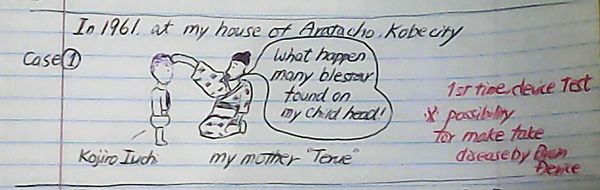 In 1961. at my house of Aratacho, Kobecity
Case ①
What happen
many blestar
found on
my child head!
1st time device Test
※ possibility
for make fake
disease by Brain
Device
Kojiro Iuchi
my mother "Terue"